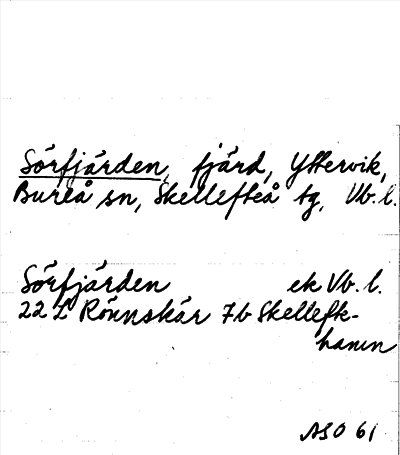 Sörfjärden, fjärd, Yttervik,
Bureå sn, Skellefteå tg, Vb. l.
Sörfjärden ek Vb. l.
22 L Rönnskär 7b Skellefte-
hamn
ASO 61